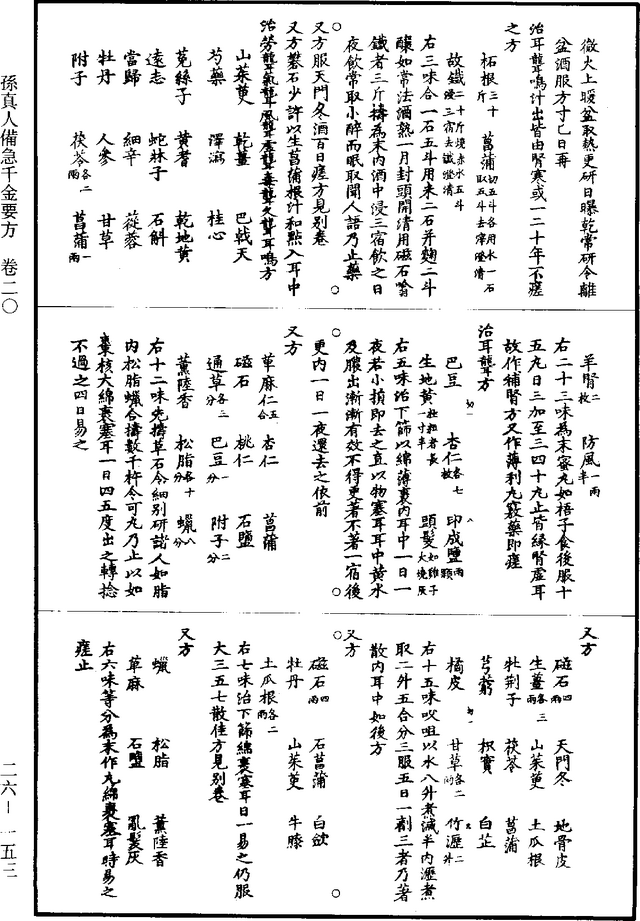 微火上暖盆取熱更研日曝乾常研令離
盆酒服方寸匕日再
治耳聾鳴汁出皆由腎寒或一二十年不瘥
之方
柘根三十斤 菖蒲切五斗各用水一石取五斗去滓澄清
故鐵二十斤燒赤水五斗浸三宿去鐵澄清
右三味合一石五斗用米二石并麴二斗
釀如常法酒熟一月封頭開清用磁石吸
鐵者三斤擣為末內酒中浸三宿飲之日
夜飲常取小醉而眠取聞人語乃止藥
又方服天門冬酒百日瘥方見別卷
又方礬石少許以生菖蒲根汁和點入耳中
治勞聾氣聾風聾虛聾毒聾久聾耳鳴方
山茱萸 乾薑 巴戟天
芍藥 澤瀉 桂心
菟絲子 黃耆 乾地黃
遠志 蛇牀子 石斛
當歸 細辛 蓯蓉
牡丹 人參 甘草
附子 茯苓各二兩 菖蒲一兩
羊腎二枚 防風一兩半
右二十三味為末蜜丸如梧子食後服十
五丸日三加至三四十丸止皆緣腎虛耳
故作補腎方又作薄利九竅藥即瘥
治耳聾方
巴豆 杏仁各七枚 印成鹽兩顆
生地黃粗者長一寸半 頭髮如雞子大燒灰
右五味治下篩以綿薄裹內耳中一日一
夜若小損即去之直以物塞耳耳中黃水
及膿出漸漸有效不得更著不著一宿後
更內一日一夜還去之依前
又方
萆麻仁五合 杏仁 菖蒲
磁石 桃仁 石鹽
通草各三分 巴豆一分 附子二分
薰陸香 松脂各十分 蠟八分
右十二味先擣草石令細別研諸人如脂
內松脂蠟合擣數千杵令可丸乃止以如
棗核大綿裹塞耳一日四五度出之轉捻
不過之四日易之
又方
磁石四兩 天門冬 地骨皮
生薑各三兩 山茱萸 土瓜根
牡荊子 茯苓 菖蒲
芎藭 枳實 白芷
橘皮 甘草各二兩 竹瀝二升
右十五味㕮咀以水八升煮減半內瀝煮
取二升五合分三服五日一劑三者乃著
散內耳中如後方
又方
磁石四兩 石菖蒲 白蘞
牡丹 山茱萸 牛膝
土瓜根各二兩
右七味治下篩綿裹塞耳日一易之仍服
大三五七散佳方見別卷
又方
蠟 松脂 薰陸香
萆麻 石鹽 亂髮灰
右六味等分為末作丸綿裹塞耳時易之
瘥止
孫真人備急千金要方 卷二〇
二六－一五三